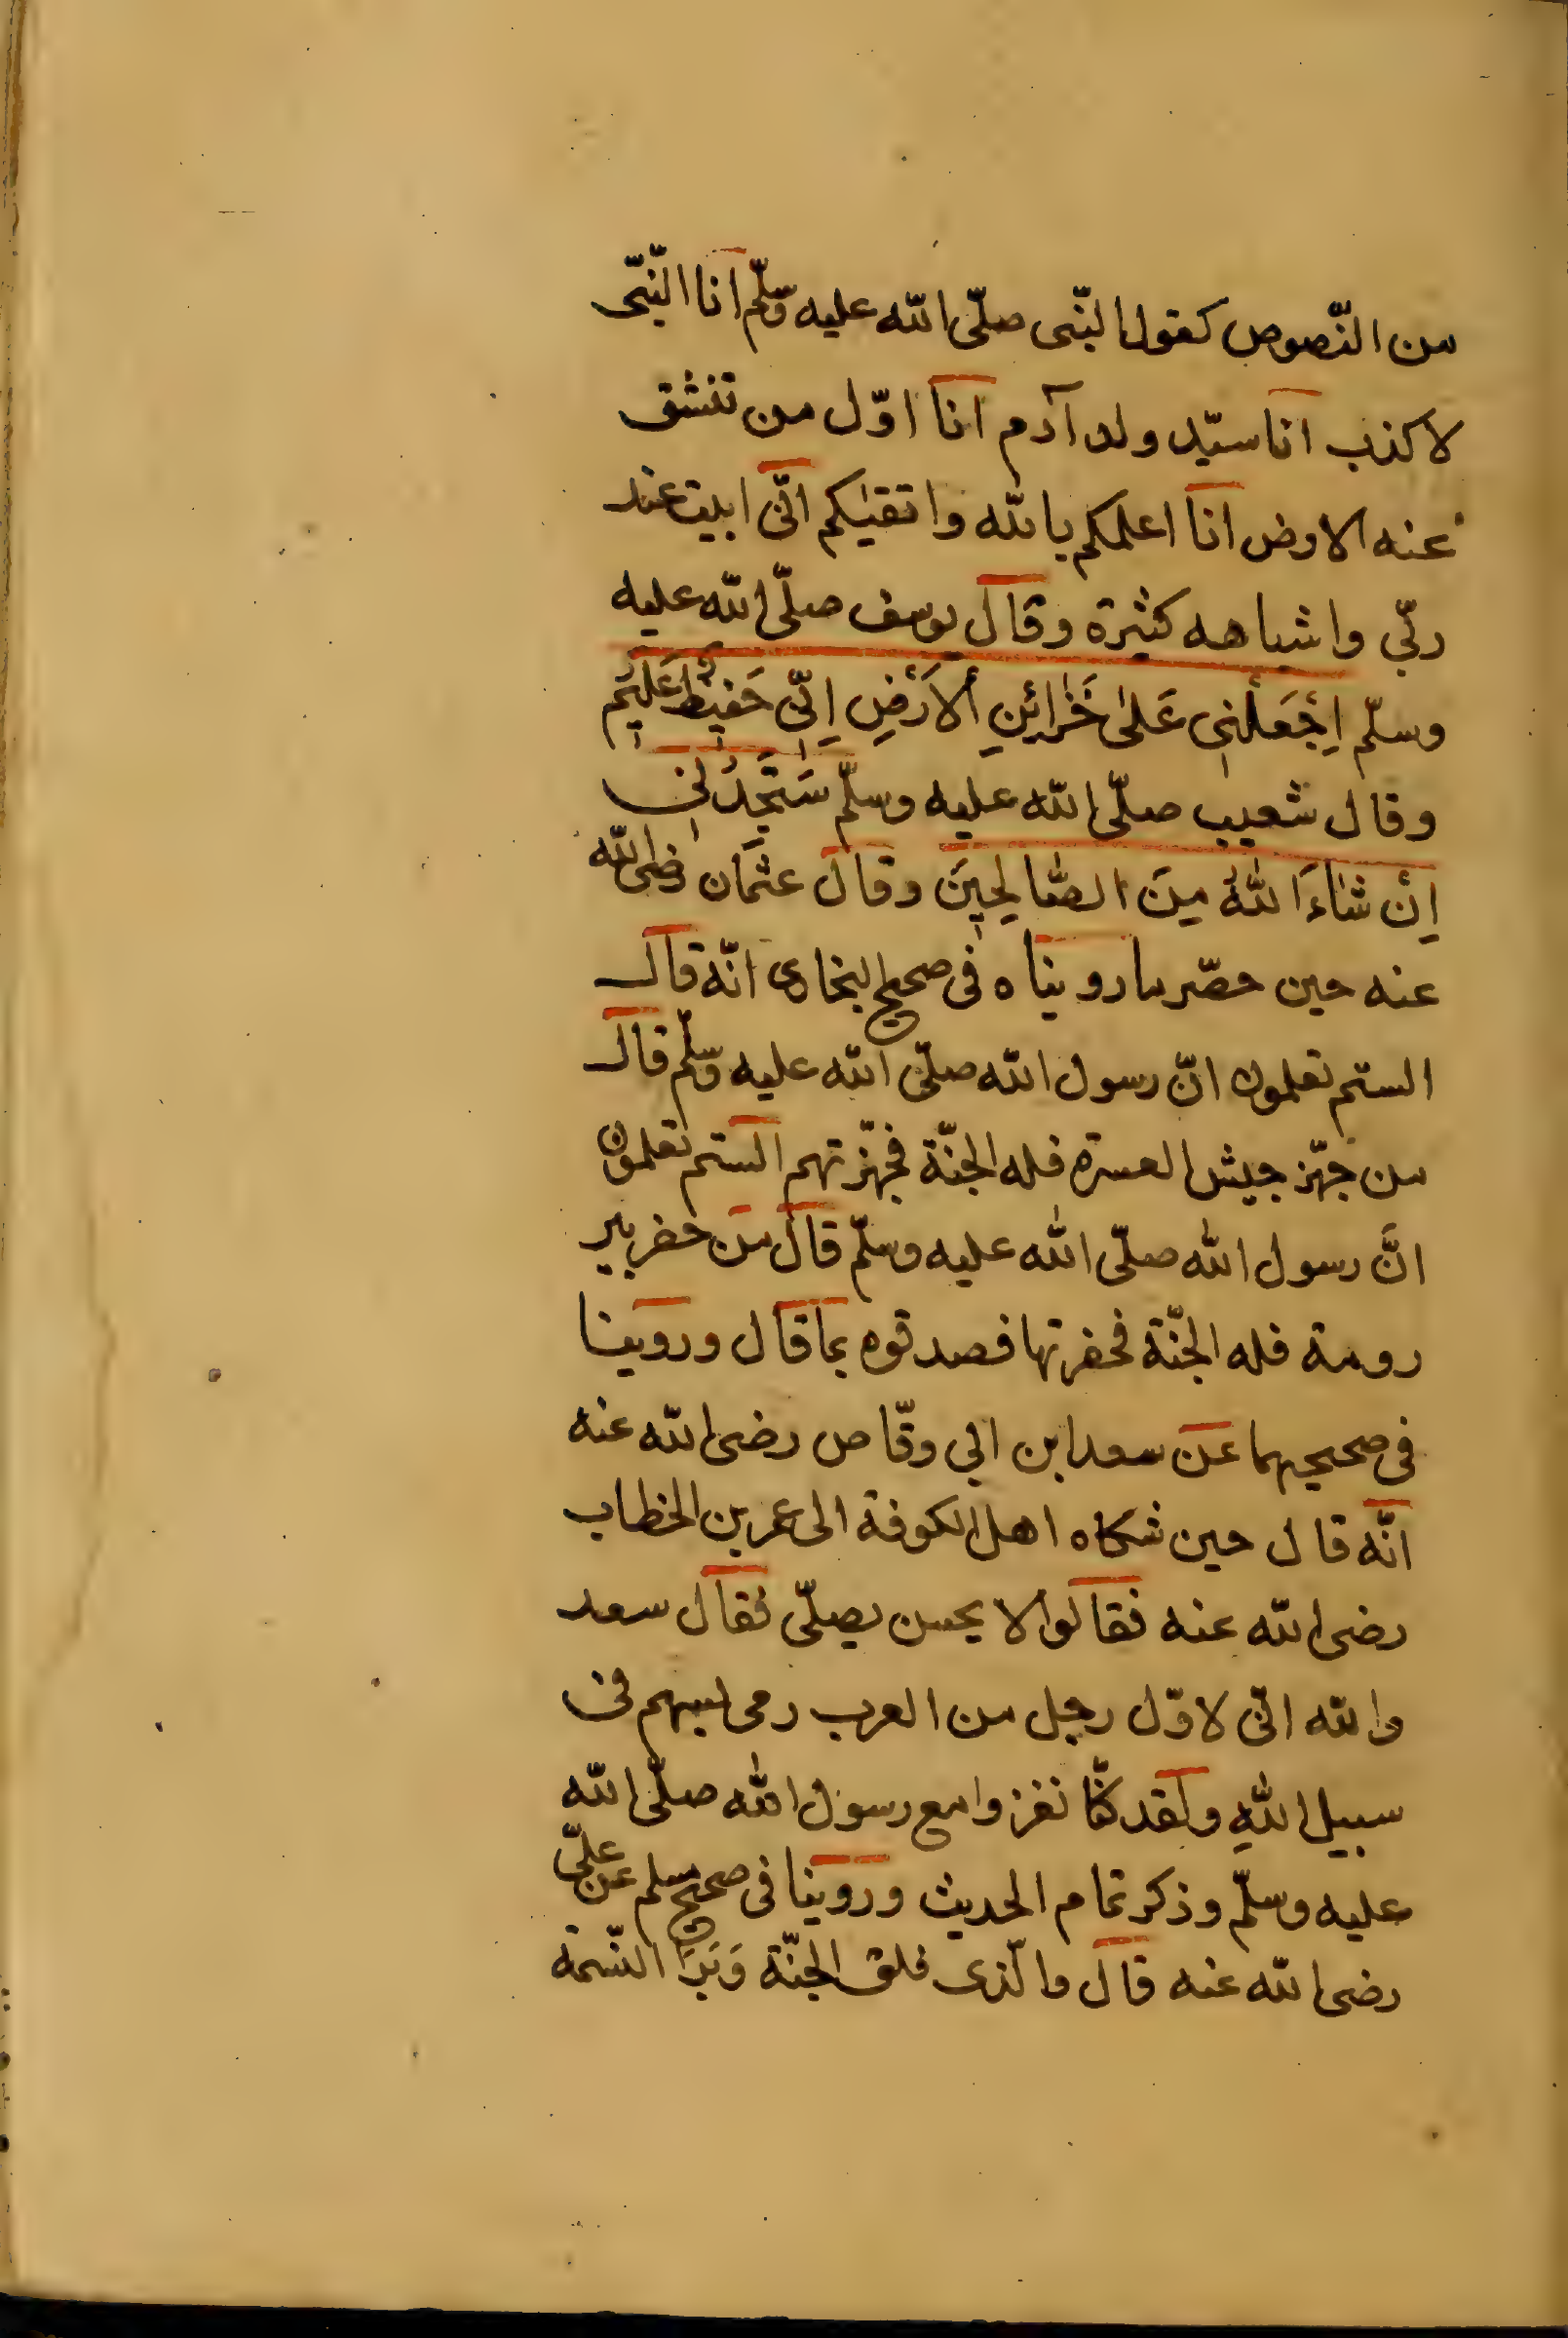 من النّصوص كقول النّبى صلّى الله عليه وسلّم انا النّبّى
لا كذب انا سيّد ولد آدم انا اوّل من تنشق
عنه الارض انا اعلمكم بالله واتقيكم انّى ابيت عند
ربّي واشباهه كثيرة وقال يوسف صلّى الله عليه
وسلّم اِجْعَلْنِى عَلىٰ خَزَائِنِ اْلاَرْضِ اِنِّي حَفِيظٌ عَلِيمٌ
وقال شعيب صلّى الله عليه وسلّم سَتَجِدُنِى
اِنْ شَاءَ اللهُ مِنَ الصَّالِحِينَ وقال عثمان رضى الله
عنه حين حصّر ما رويناه فى صحيح البخارى انّه قال
الستم تعلمون انّ رسول الله صلّى الله عليه وسلّم قال
من جهّز جيش العسرة فله الجنّة فجهّزتهم الستم تعلمون
انَّ رسول الله صلّى الله عليه وسلّم قال من حفر بير
رومة فله الجنّة فحفرتها فصدقوه بما قال وروينا
فى صحيحيهما عن سعد ابن ابي وقّاص رضى الله عنه
انّه قال حين شكاه اهل الكوفة الى عمر بن الخطاب
رضى الله عنه فقالوا لا يحسن يصلّى فقال سعد
والله انّى لاوّل رجل من العرب رمى بسهم فى
سبيل اللهِ ولقد كنّا نغزوا مع رسول الله صلّى الله
عليه وسلّم وذكر تمام الحديث وروينا فى صحيح مسلم عن علىّ
رضى الله عنه قال والّذى فلق الجنّة وَبَرَا النّسمة